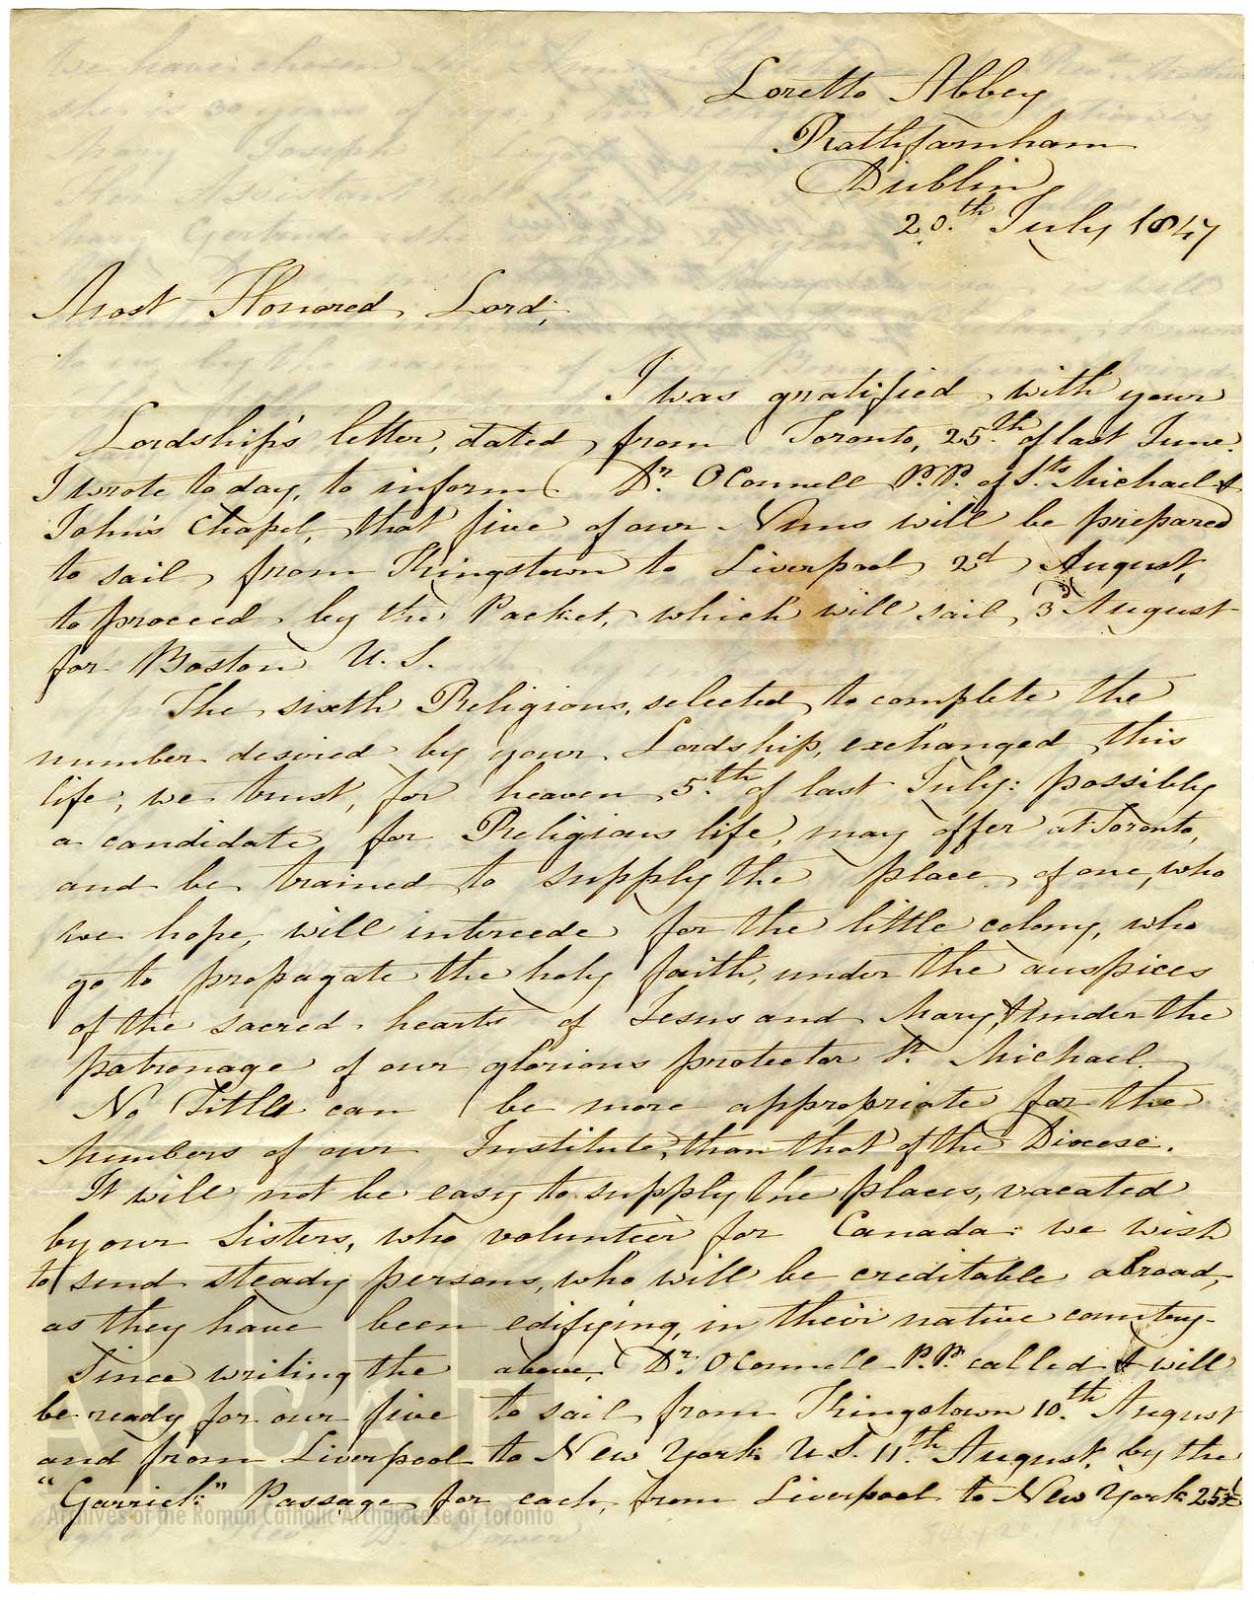 Loretto Abbey
Rathfarnham
Dublin
20.th July 1847
Most Honored Lord,
I was gratified with your
Lordship's letter, dated from Toronto, 25.th of last June.
I wrote to day, to inform Dr. OConnell P.P. of St.s Michael &
John's Chapel, that five of our Nuns will be prepared
to sail from Kingstown to Liverpool 2d August,
to proceed by the Packet, which will sail 3d August
for Boston U.S.
The sixth Religious, selected to complete the
number desired by your Lordship, exchanged this
life, we trust, for heaven 5.th of last July: possibly
a candidate for Religious life, may offer at Toronto,
and be trained to supply the place of one, who
we hope, will intercede for the little colony, who
go to propagate the holy faith, under the auspices
of the sacred hearts of Jesus and Mary, & under the
patronage of our glorious protector St. Michael.
No Title can be more appropriate for the
Members of our Institute, than that of the Diocese.
It will not be easy to supply the places, vacated
by our Sisters, who volunteer for Canada: we wish
to send steady persons, who will be creditable abroad,
as they have been edifying, in their native country.
Since writing the above, Dr. OConnell P.P. called & will
be ready for our five to sail from Kingstown 10.th August
and from Liverpool to New York U.S. 11th August, by the
"Garrick" Passage for each, from Liverpool to New York 25£
Archives of the Roman Catholic Archdiocese of Toronto